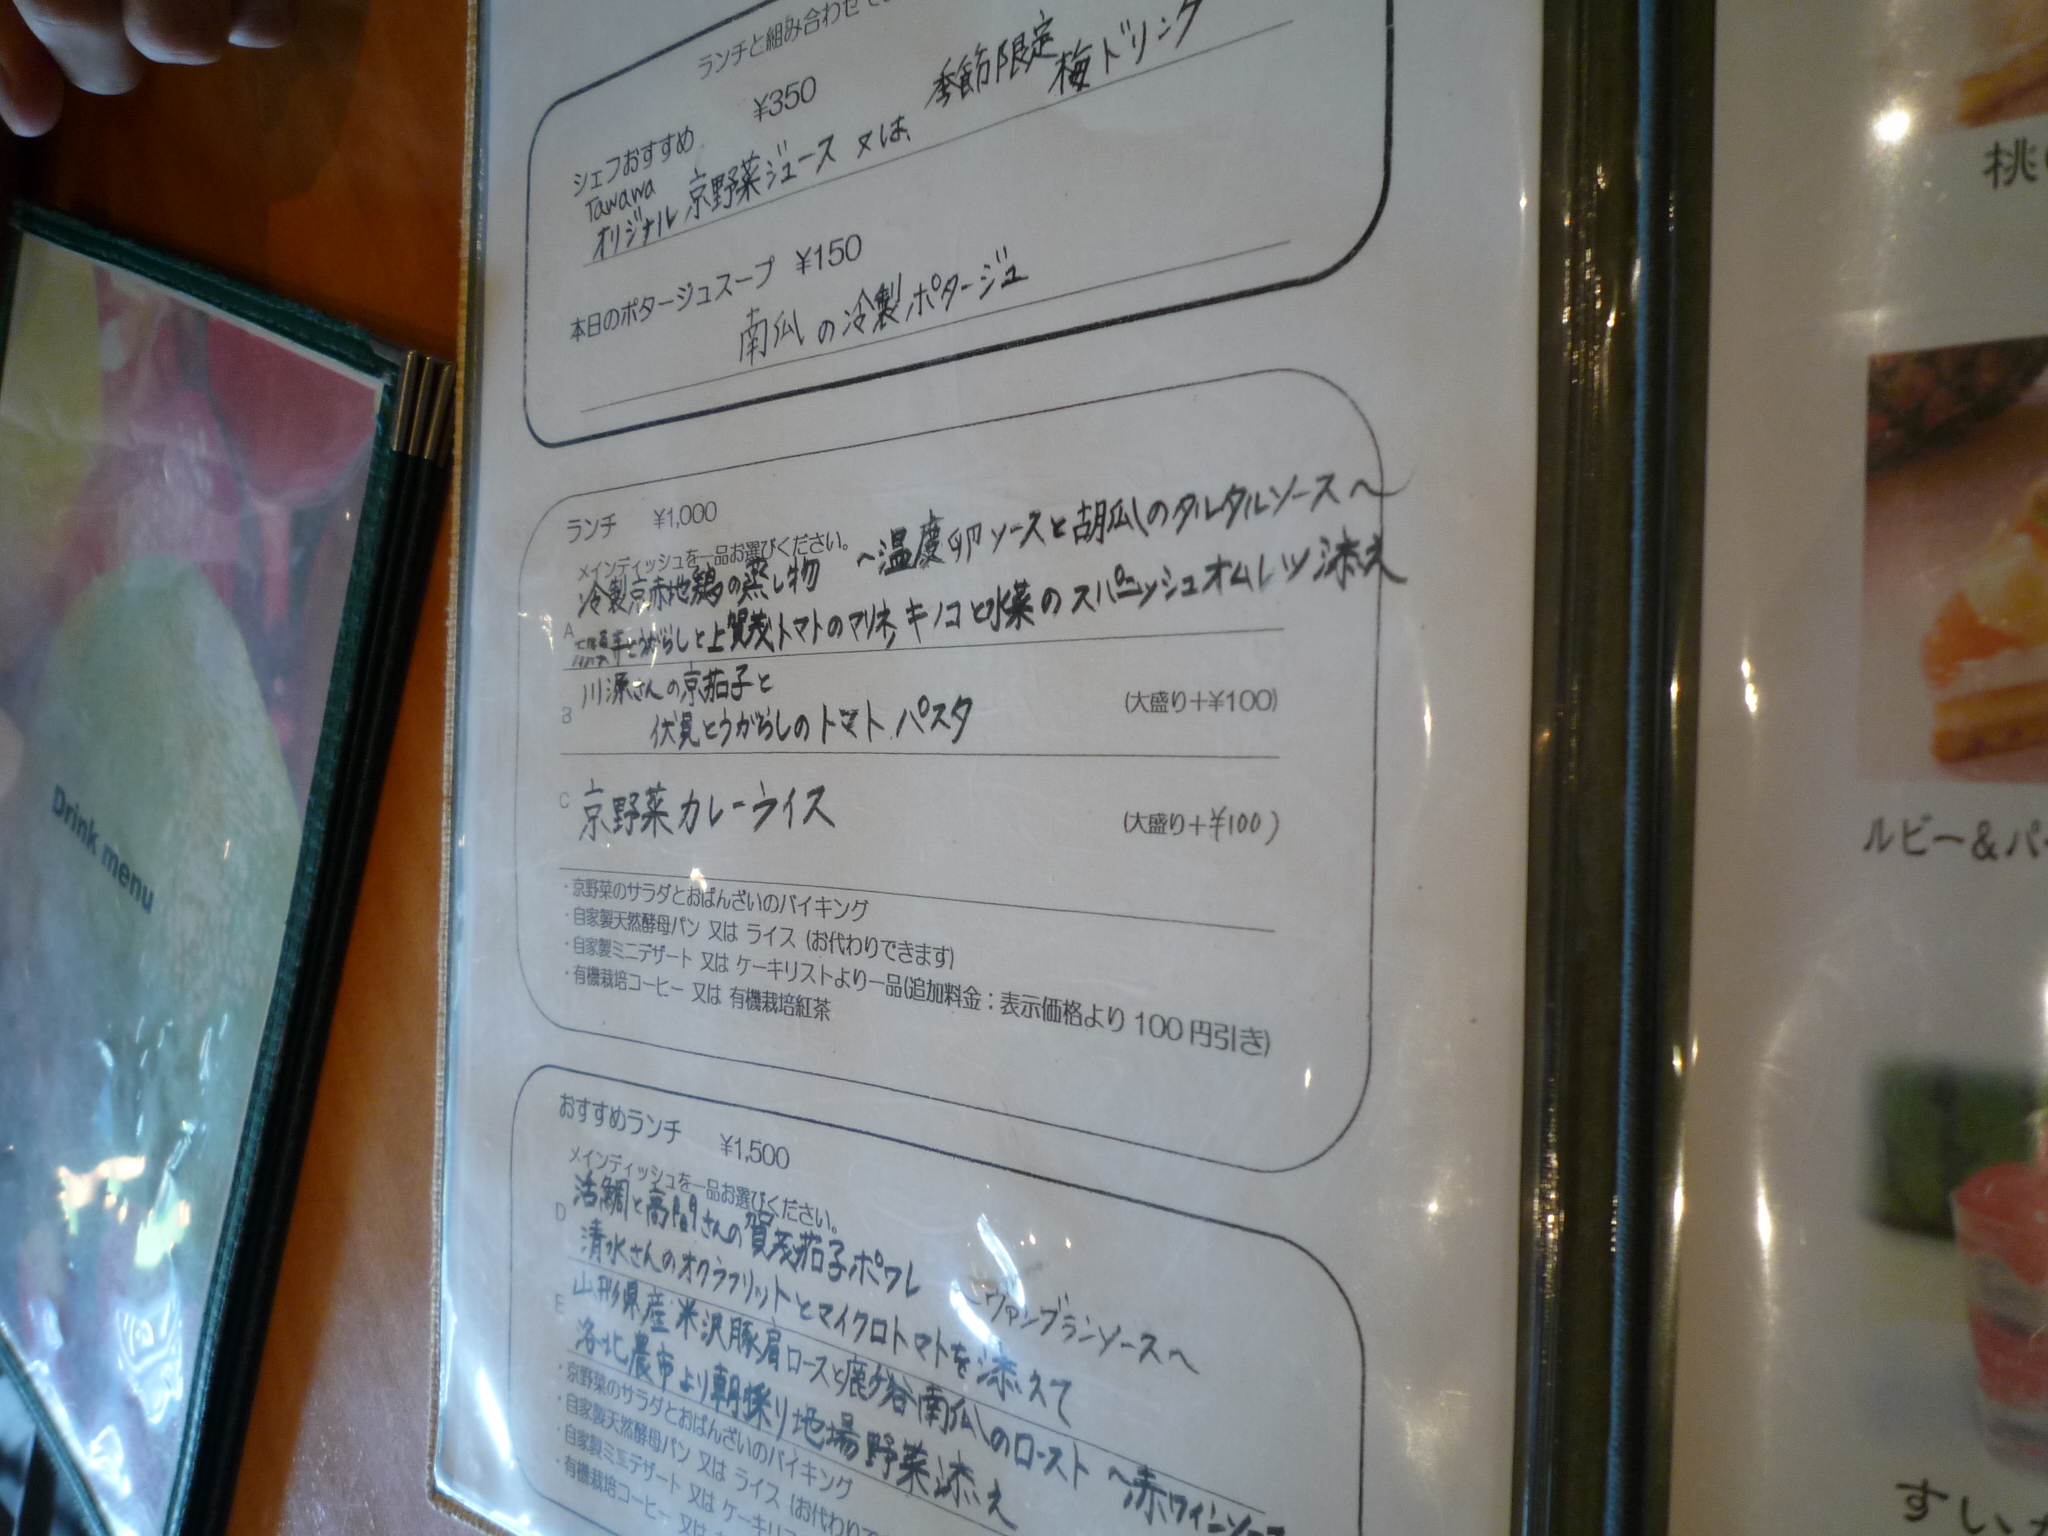 ランチと組み合わせて
シェフおすすめ ¥350
Tawawa
オリジナル 京野菜ジュース 又は 季節限定 梅ドリンク
本日のポタージュスープ ¥150
南瓜の冷製ポタージュ
ランチ ¥1,000
メインディッシュを一品お選びください。
A 冷製京赤地鶏の蒸し物 〜温度卵ソースと胡瓜のタルタルソース〜
とうがらしと上賀茂トマトのマリネ キノコと水菜のスパニッシュオムレツ添え
B 川源さんの京茄子と
伏見とうがらしのトマトパスタ (大盛り+¥100)
C 京野菜カレーライス (大盛り+¥100)
・京野菜のサラダとおばんざいのバイキング
・自家製天然酵母パン 又は ライス (お代わりできます)
・自家製ミニデザート 又は ケーキリストより一品(追加料金：表示価格より100円引き)
・有機栽培コーヒー 又は 有機栽培紅茶
おすすめランチ ¥1,500
メインディッシュを一品お選びください。
D 活鯛と高間さんの賀茂茄子ポワレ 〜ヴァンブランソース〜
清水さんのオクラフリットとマイクロトマトを添えて
E 山形県産米沢豚肩ロースと鹿ケ谷南瓜のロースト 〜赤ワインソース
洛北農市より朝採り地場野菜添え
・京野菜のサラダとおばんざいのバイキング
・自家製天然酵母パン 又は ライス (お代わりで
・自家製ミニデザート 又は ケーキリス
・有機栽培コーヒー 又は
Drink menu
桃
ルビー&パ
すい